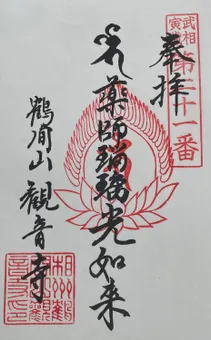 武相
寅歳
第三十一番
奉拝
薬師瑠璃光如来
鶴間山
観音寺